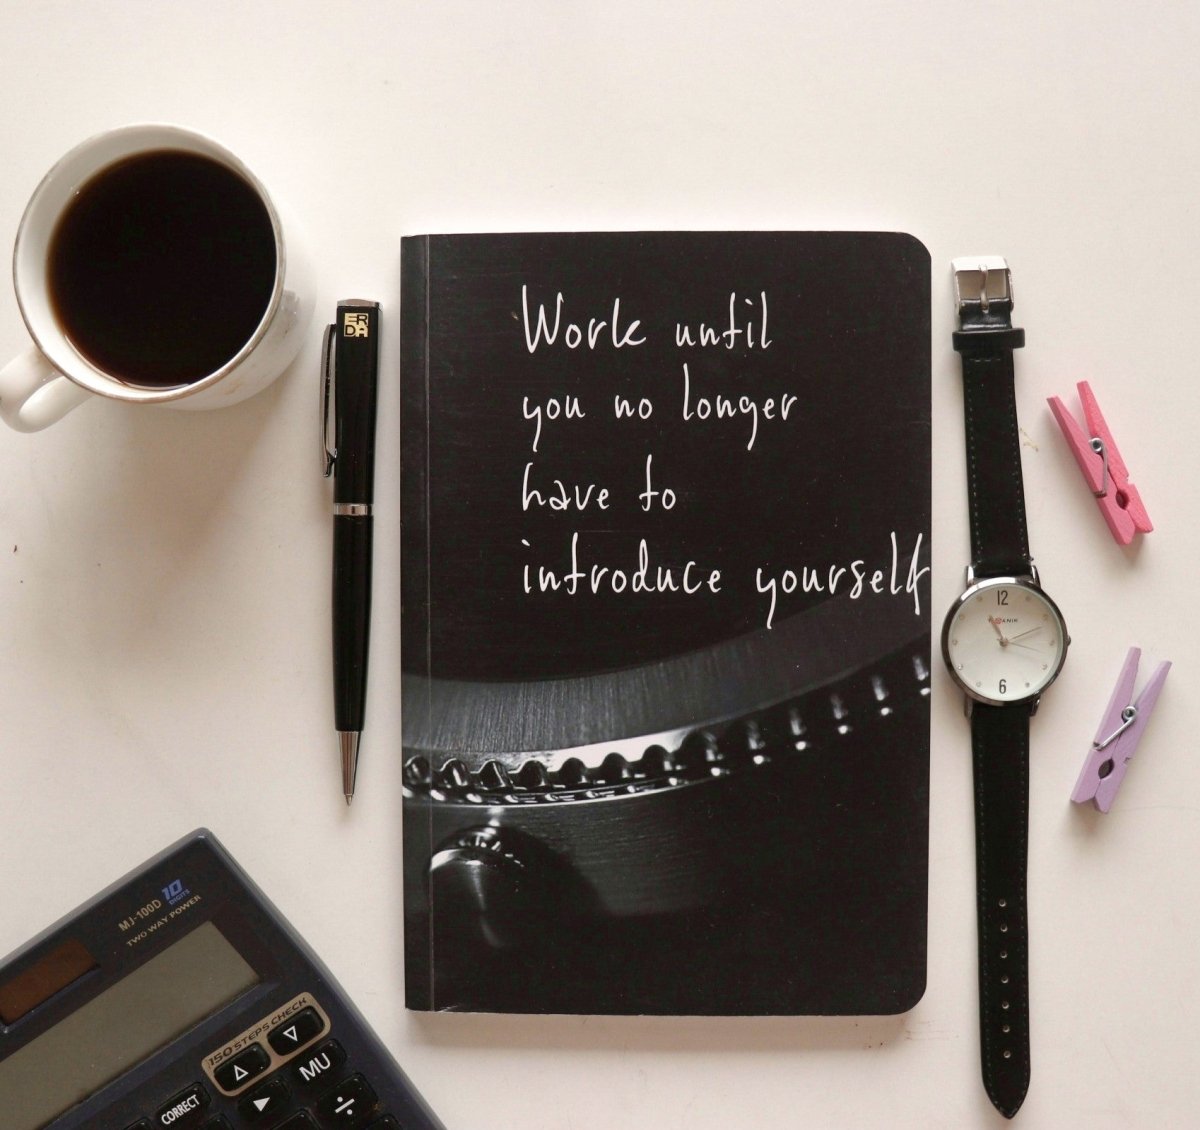 Work until
you no longer
have to
introduce yourself
ER
DA
12
6
MJ-100D 10
DIGITS
TWO WAY POWER
150 STEPS CHECK
MU
CORRECT
÷